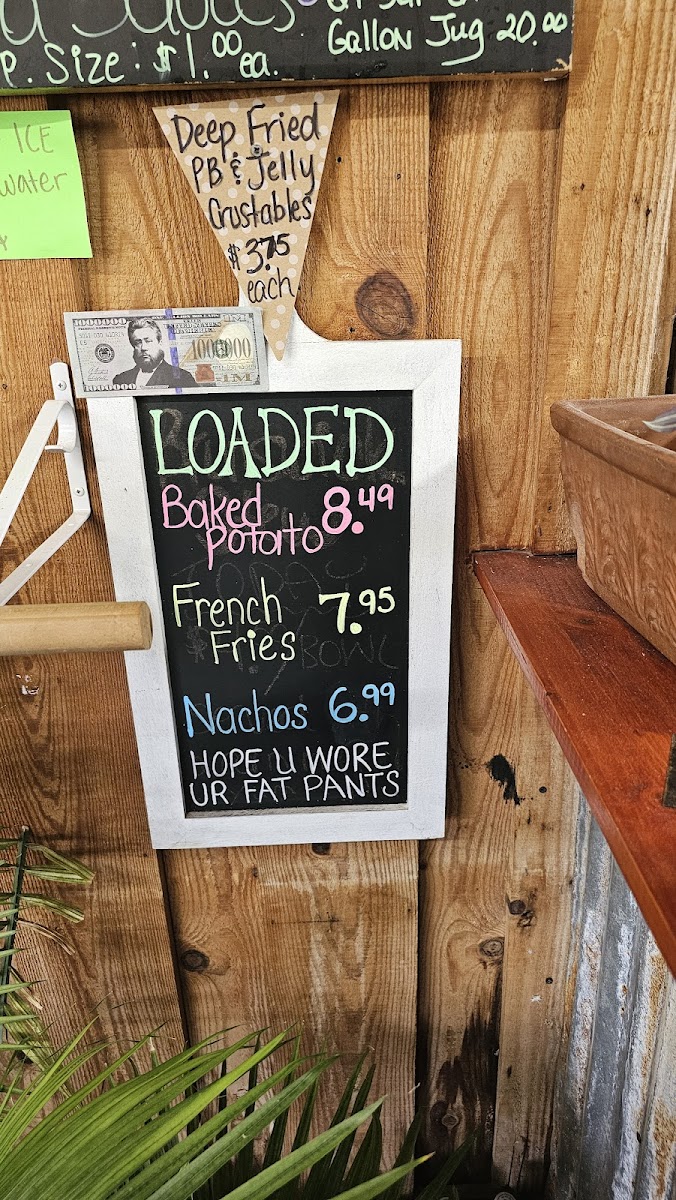 Gallon Jug 20.00
P. Size: $1.00 ea.
ICE
water
Deep Fried
PB & Jelly
Crustables
$3.75
each
1000000
1000000
1000000
LOADED
Baked 8.49
Potato
French 7.95
Fries
Nachos 6.99
HOPE U WORE
UR FAT PANTS
BOWL